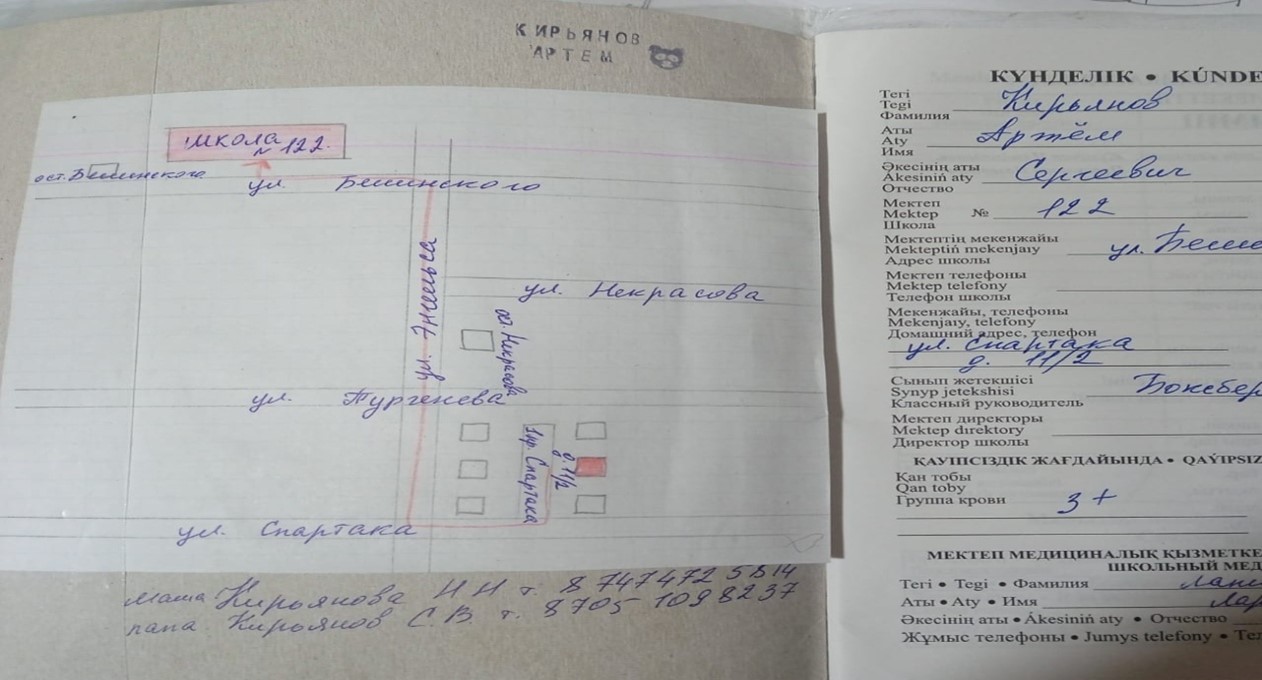 КИРЬЯНОВ
АРТЕМ
школа
№ 122.
ост. Белинского
ул. Белинского
ул. Энгельса
ул. Некрасова
ост. Некрасова
ул. Тургенева
1 пр. Спартака
д. 11/2
ул. Спартака
мама Кирьянова Н Н т. 8 747 472 5814
папа Кирьянов С. В. т. 8705 1098237
КҮНДЕЛІК • KÚNDE
Тегі
Tegi
Фамилия Кирьянов
Аты
Aty Артём
Имя
Әкесінің аты
Ákesiniń aty Сергеевич
Отчество
Мектеп
Mektep № 122
Школа
Мектептің мекенжайы
Mekteptiń mekenjaıy ул. Бели
Адрес школы
Мектеп телефоны
Mektep telefony
Телефон школы
Мекенжайы, телефоны
Mekenjaıy, telefony
Домашний адрес, телефон
ул. Спартака
д. 11/2
Сынып жетекшісі
Synyp jetekshisi Боксбер
Классный руководитель
Мектеп директоры
Mektep dırektory
Директор школы
ҚАУІПСІЗДІК ЖАҒДАЙЫНДА • QAÝIPSIZ
Қан тобы
Qan toby
Группа крови 3+
МЕКТЕП МЕДИЦИНАЛЫҚ ҚЫЗМЕТКЕ
ШКОЛЬНЫЙ МЕД
Тегі • Tegi • Фамилия
Аты • Aty • Имя Лар
Әкесінің аты • Ákesiniń aty • Отчество
Жұмыс телефоны • Jumys telefony • Тел